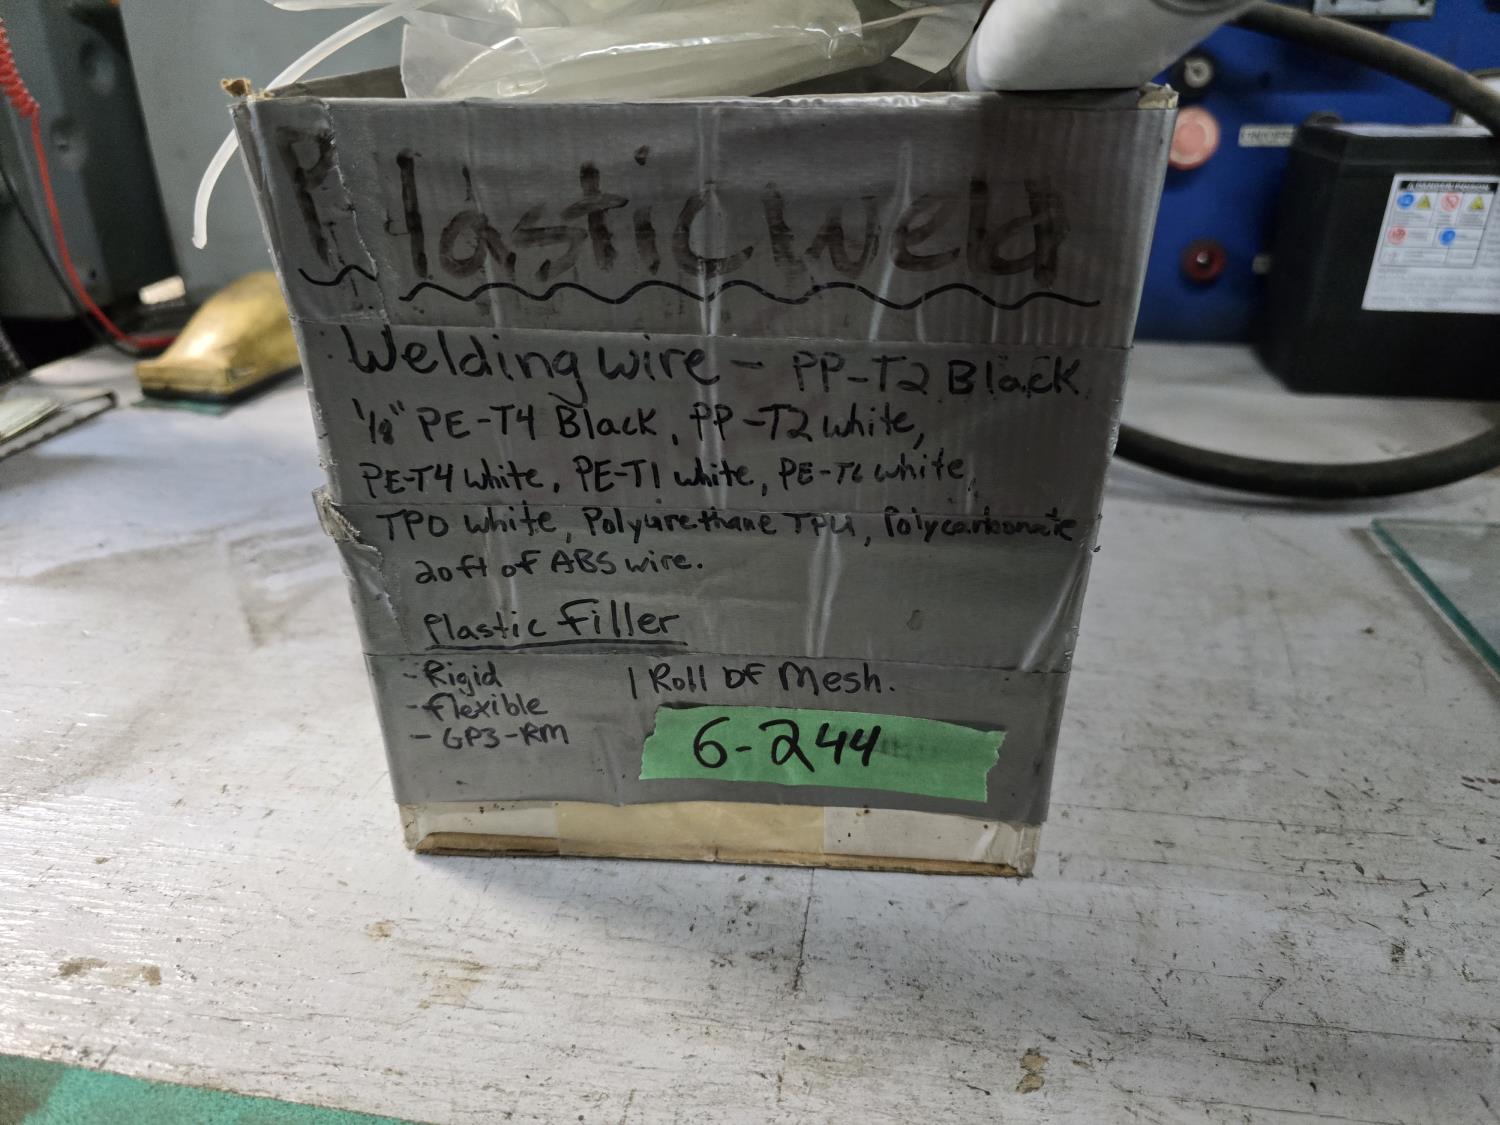 Plastic Weld
Welding wire - PP-T2 Black
1/8" PE-T4 Black, PP-T2 white,
PE-T4 white, PE-T1 white, PE-T6 white,
TPO white, Polyurethane TPU, Polycarbonate
20ft of ABS wire.
Plastic Filler
- Rigid
- Flexible
- GP3-RM
1 Roll Of Mesh.
6-244
DANGER/POISON